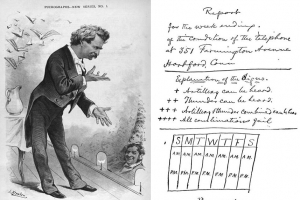 PICTOGRAPHS—NEW SERIES, NO. 1
Report
for the week ending
of the Condition of the telephone
at 351 Farmington Avenue
Hartford, Conn
Explanation of the Signs.
+ Artillery can be heard.
++ Thunder can be heard.
+++ Artillery & thunder combined can be heard
++++ All combinations fail
S M T W T F S
A.M. A.M. A.M. A.M. A.M. A.M. A.M.
P.M. P.M. P.M. P.M. P.M. P.M. P.M.